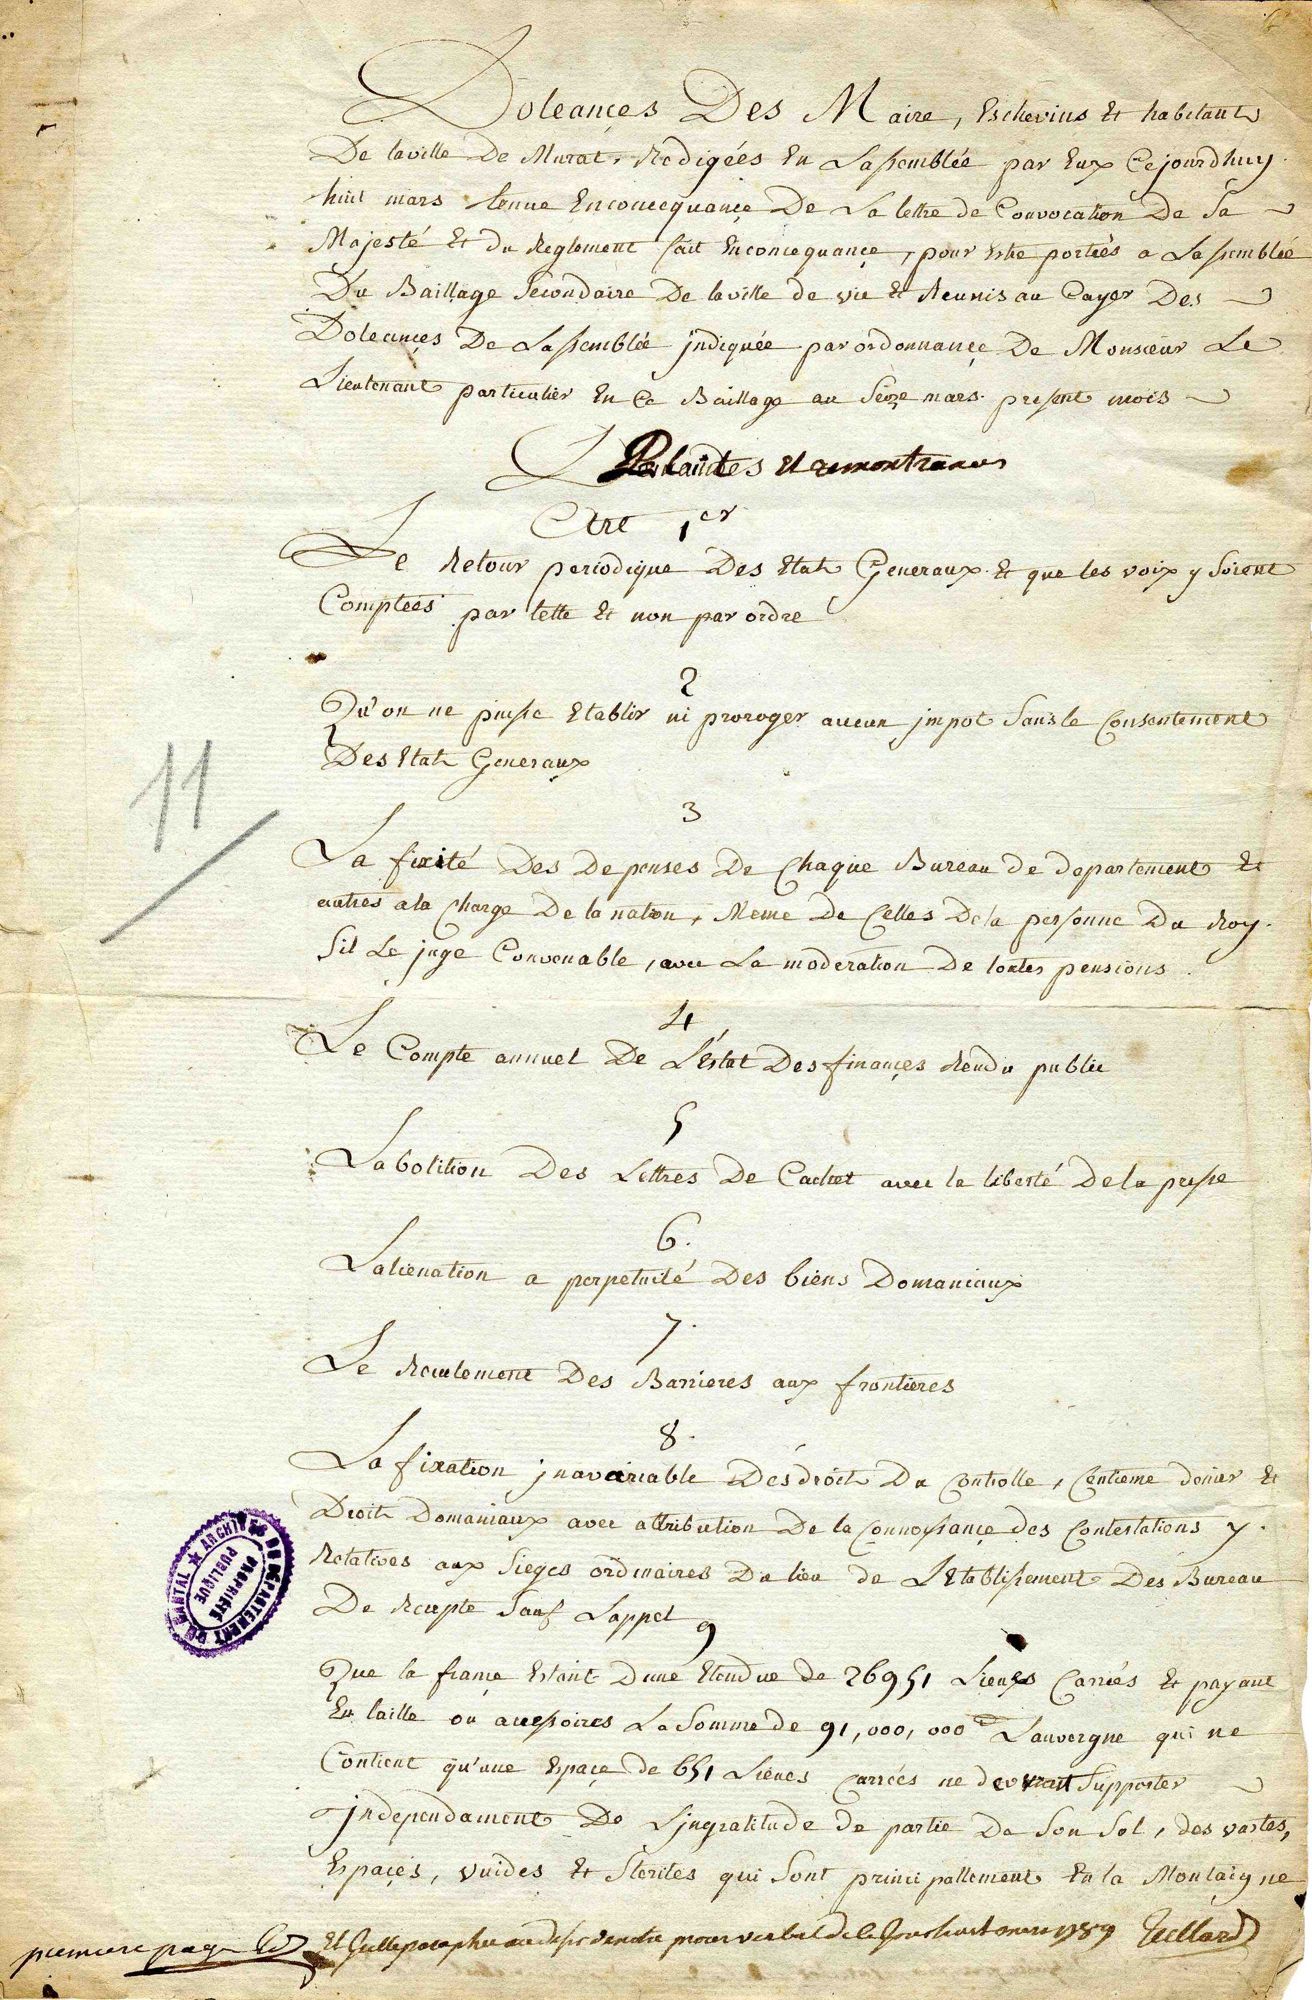 Doleançes Des Maire, Eschevins Et habitants
De laville De Murat, Redigées En Lassemblée par Eux Cejourdhuy
huit mars tenue Enconcequançe De La lettre de Convocation De Sa
Majesté Et du Reglement fait Enconcequançe, pour Estre portées a Lassemblée
Du Baillage Secondaire De laville de vic Et Reunis au Cayer Des
Doleançes De Lassemblée jndiquée par ordonnançe De Monsieur Le
Lieutenant particulier En Ce Baillage au Seize mars present mois
Plaintes Et remontrances
Art 1er
Le Retour periodique Des Etats Generaux Et que les voix y Soient
Comptées par tette Et non par ordre
2
Qu'on ne puisse Etablir ni proroger aucun jmpot Sans le Consentement
Des Etats Generaux
3
La fixité Des Depenses De Chaque Bureau de departement Et
autres ala Charge De la nation, Meme De Celles Dela personne Du Roy.
Sil Le juge Convenable, avec La moderation De toutes pensions
4
Le Compte annuel De L'Estat Des finançes Rendu public
5
Labolition Des Lettres De Cachet avec la liberté De la presse
6.
Lalienation a perpetuité Des biens Domaniaux
7.
Le Reculement Des Barrieres aux frontieres
8.
La fixation jnavariable Des droits Du Controlle, Centieme denier Et
Droits Domaniaux avec attribution De la Connoissançe des Contestations y
Relatives aux Sieges ordinaires Du lieu de L'Etablissement Des Bureau
De Recepte Sauf Lappel
9
Que la françe Estant Dune Etendue de 26951 Lieues Carrées Et payant
En taille ou accessoires La Somme de 91,000,000 Lauvergne qui ne
Contient qu'une Espaçe de 651 Lieues Carrées ne devrait Supporter
jndependament De Ljngratitude de partie De Son Sol, des vastes,
Espaçes, vuides Et Steriles qui Sont principallement En la Montaigne
premiere page
Et paraphée au desir de notre procès verbal de ce jour huit mars 1789 Teillard
11
ARCHIVES DU DÉPARTEMENT DU CANTAL
PROPRIÉTÉ
PUBLIQUE